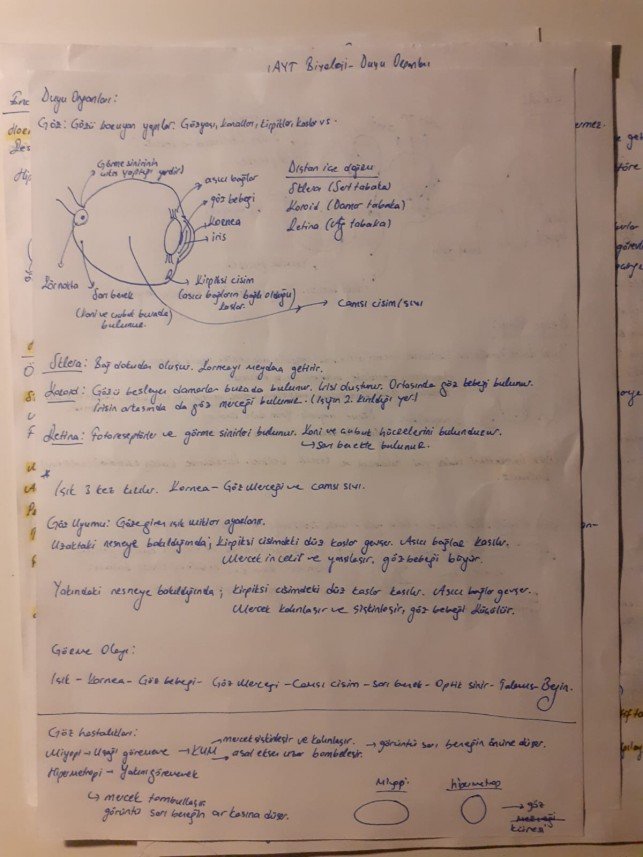 AYT Biyoloji - Duyu Organları
Duyu Organları:
Göz: Gözü koruyan yapılar: Gözyaşı, kanalları, kirpikler, kaslar vs.
Görme sinirinin
çıkış yaptığı yerdir)
asıcı bağlar
göz bebeği
Kornea
iris
Kirpiksi cisim
(asıcı bağların bağlı olduğu)
kaslar.
Camsı cisim/sıvı
Kör nokta
Sarı benek
(koni ve çubuk burada)
bulunur.
Dıştan içe doğru
Sklera (Sert tabaka)
Koroid (Damar tabaka)
Retina (Ağ tabaka)
Sklera: Bağ dokudan oluşur. Korneayı meydana getirir.
Koroid: Gözü besleyen damarlar burada bulunur. İrisi oluşturur. Ortasında göz bebeği bulunur.
İrisin ortasında da göz merceği bulunur. (Işığın 2. kırıldığı yer.)
Retina: Fotoreseptörler ve görme sinirleri bulunur. Koni ve çubuk hücrelerini bulundurur.
→ Sarı benekte bulunur.
*
Işık 3 kez kırılır. Kornea - Göz Merceği ve camsı sıvı.
Göz Uyumu: Göze giren ışık miktarı ayarlanır.
Uzaktaki nesneye bakıldığında; kirpiksi cisimdeki düz kaslar gevşer. Asıcı bağlar kasılır.
Mercek incelir ve yassılaşır, göz bebeği büyür.
Yakındaki nesneye bakıldığında; kirpiksi cisimdeki düz kaslar kasılır. Asıcı bağlar gevşer.
Mercek kalınlaşır ve şişkinleşir, göz bebeği küçülür.
Görme Olayı:
Işık - Kornea - Göz bebeği - Göz Merceği - Camsı cisim - Sarı benek - Optik sinir - Talamus - Beyin.
Göz hastalıkları:
Miyopi → Uzağı görememe → KUM → mercek şişkinleşir ve kalınlaşır. → görüntü sarı beneğin önüne düşer.
→ asal eksen bombeleşir.
Hipermetropi → Yakını görememek
↳ mercek tombullaşır
görüntü sarı beneğin arkasına düşer.
Miyopi
hipermetrop
→ göz
küresi